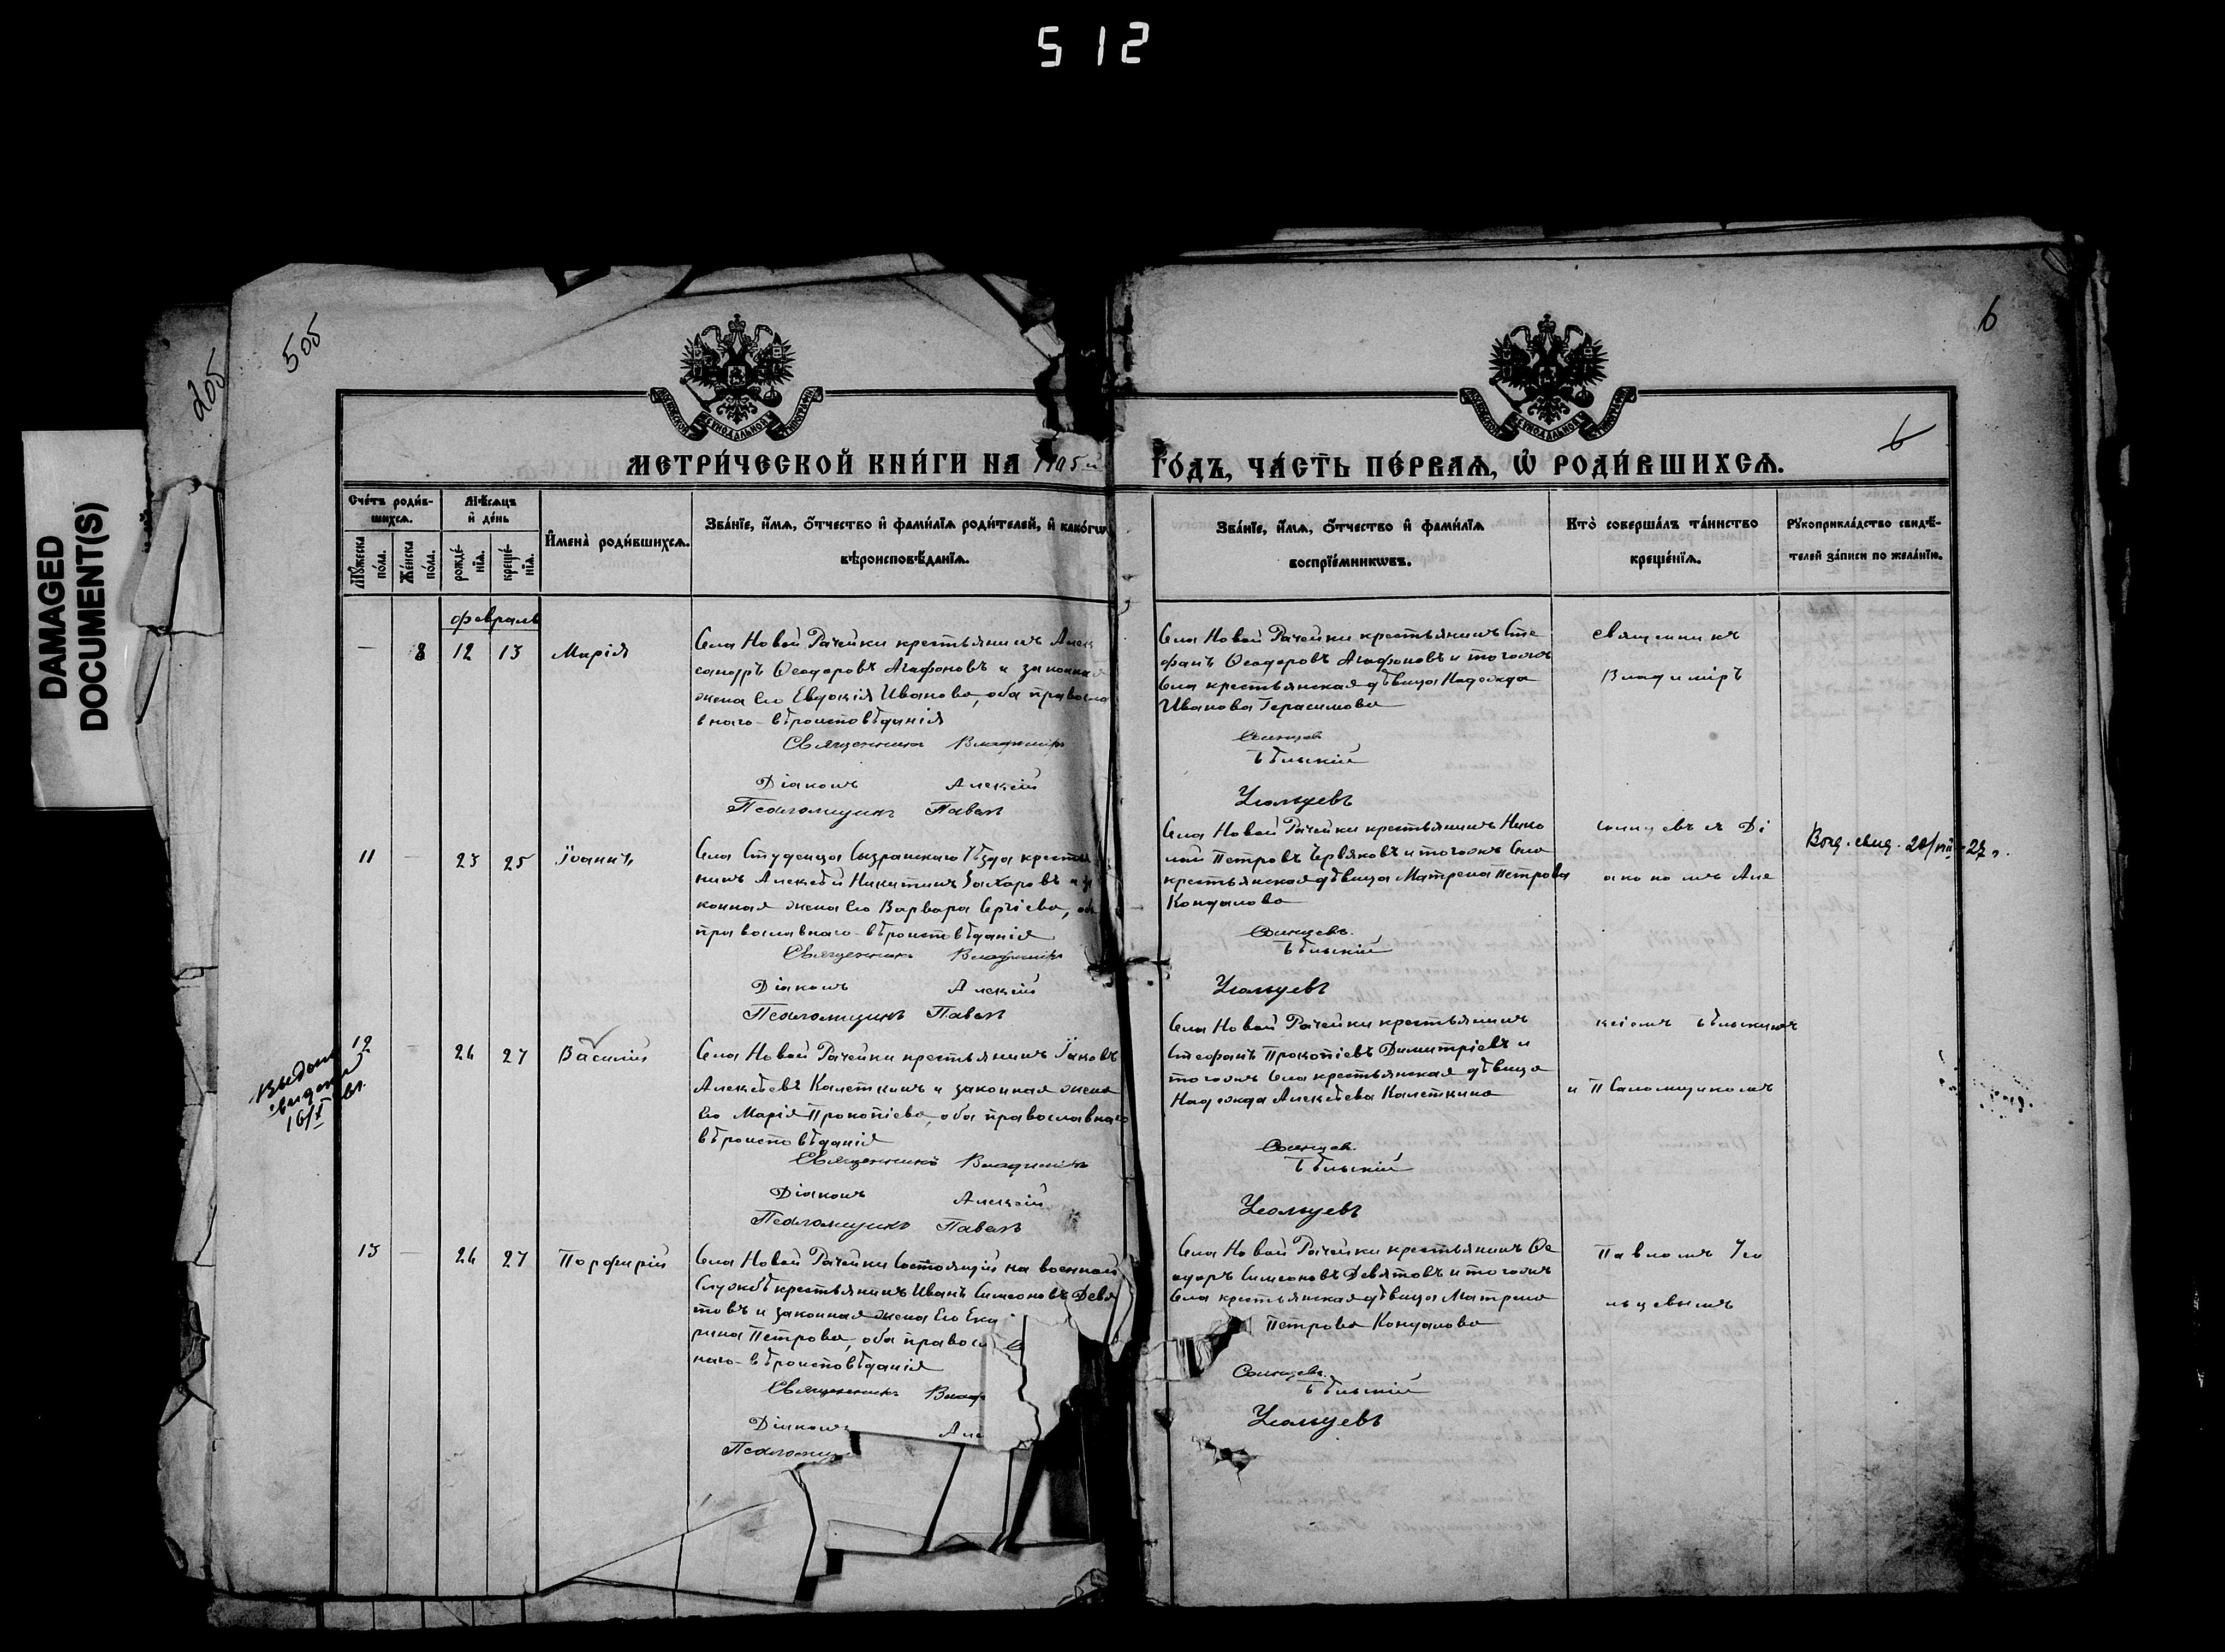 512
DAMAGED
DOCUMENT(S)
205
505
6
6
МЕТРИ́ЧЕСКОЙ КНИ́ГИ НА 1905й
ГО́ДЪ, ЧА́СТЬ ПЕ́РВАѦ, Ѡ҆ РОДИ́ВШИХСѦ.
Сче́тъ роди́в-
шихсѧ.
Мѣ́сѧцъ
и҆ де́нь
Мꙋ́жеска
по́ла.
Же́нска
по́ла.
рожде́-
нїѧ.
креще́-
нїѧ.
И҆мена̀ роди́вшихсѧ.
Зва́нїе, и҆́мѧ, ѻ҆́тчество и҆ фами́лїѧ роди́телей, и҆ како́гѡ
вѣроисповѣ́данїѧ.
Зва́нїе, и҆́мѧ, ѻ҆́тчество и҆ фами́лїѧ
воспрїе́мникѡвъ.
Кто̀ соверша́лъ та́инство
креще́нїѧ.
Рꙋкоприкла́дство свидѣ́-
телей за́писи по жела́нїю.
февраль
— 8 12 13 Марія
Села Новой Рачейки крестьянинъ Алек
сандръ Ѳеодоровъ Агафоновъ и законная
жена его Евдокія Иванова, оба правосла
внаго-вѣроисповѣданія
Священникъ Владиміръ
Діаконъ Алексій
Псаломщикъ Павелъ
Села Новой Рачейки крестьянинъ Сте
фанъ Ѳеодоровъ Агафоновъ и тогожъ
Села крестьянская дѣвица Надежда
Иванова Герасимова
Солнцевъ
Бѣльскій
Усольцевъ
Священникъ
Владиміръ
11 — 23 25 Іоаннъ
Села Студенца Сызранскаго Уѣзда крестья
нинъ Алексѣй Никитинъ Захаровъ и за
конная жена его Варвара Сергіева, оба
православнаго-вѣроисповѣданія
Священникъ Владиміръ
Діаконъ Алексій
Псаломщикъ Павелъ
Села Новой Рачейки крестьянинъ Нико
лай Петровъ Червяковъ и тогожъ Села
крестьянская дѣвица Матрена Петрова
Кондалова
Солнцевъ.
Бѣльскій
Усольцевъ
Солнцевъ съ Ді
акономъ Але
Выд. свид. 20/VIII-27 г.
Выдано
свидет
16/I
12 — 26 27 Василій
Села Новой Рачейки крестьянинъ Іаковъ
Алексѣевъ Калеткинъ и законная жена
его Марія Прокопіева, оба православнаго
вѣроисповѣданія
Священникъ Владиміръ
Діаконъ Алексій
Псаломщикъ Павелъ
Села Новой Рачейки крестьянинъ
Стефанъ Прокопіевъ Димитріевъ и
тогожъ Села крестьянская дѣвица
Надежда Алексѣева Калеткина
Солнцевъ.
Бѣльскій
Усольцевъ
ксіемъ Бѣльскимъ
и Псаломщикомъ
13 — 26 27 Порфирій
Села Новой Рачейки Состоящій на военной
Службѣ крестьянинъ Иванъ Симеоновъ Девя
товъ и законная жена его Ека
рина Петрова, оба правосл
наго-вѣроисповѣданія
Священникъ Влад
Діаконъ Але
Псаломщ
Села Новой Рачейки крестьянинъ Ѳе
одоръ Симеоновъ Девятовъ и тогожъ
Села крестьянская дѣвица Матрена
Петрова Кондалова
Солнцевъ.
Бѣльскій
Усольцевъ
Павломъ Усо
льцевымъ